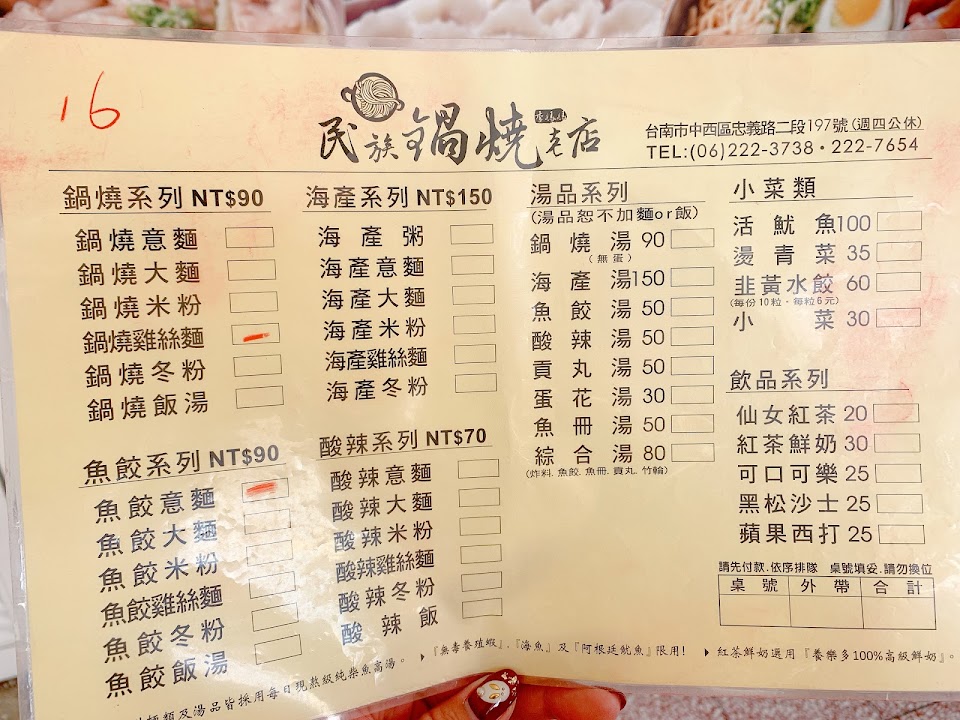 16
民族鍋燒老店
台南市中西區忠義路二段197號(週四公休)
TEL:(06)222-3738・222-7654
鍋燒系列 NT$90
鍋燒意麵
鍋燒大麵
鍋燒米粉
鍋燒雞絲麵
鍋燒冬粉
鍋燒飯湯
魚餃系列 NT$90
魚餃意麵
魚餃大麵
魚餃米粉
魚餃雞絲麵
魚餃冬粉
魚餃飯湯
海產系列 NT$150
海產粥
海產意麵
海產大麵
海產米粉
海產雞絲麵
海產冬粉
酸辣系列 NT$70
酸辣意麵
酸辣大麵
酸辣米粉
酸辣雞絲麵
酸辣冬粉
酸辣飯
湯品系列
(湯品恕不加麵or飯)
鍋燒湯 90
(無蛋)
海產湯150
魚餃湯 50
酸辣湯 50
貢丸湯 50
蛋花湯 30
魚冊湯 50
綜合湯 80
(炸料.魚餃.魚冊.貢丸.竹輪)
小菜類
活魷魚100
燙青菜 35
韭黃水餃 60
(每份10粒,每粒6元)
小菜 30
飲品系列
仙女紅茶 20
紅茶鮮奶 30
可口可樂 25
黑松沙士 25
蘋果西打 25
請先付款.依序排隊 桌號填妥.請勿換位
桌號 外帶 合計
麵類及湯品皆採用每日現熬級純柴魚高湯。
▶『無毒養殖蝦』.『海魚』及『阿根廷魷魚』限用!
▶紅茶鮮奶選用『養樂多100%高級鮮奶』。